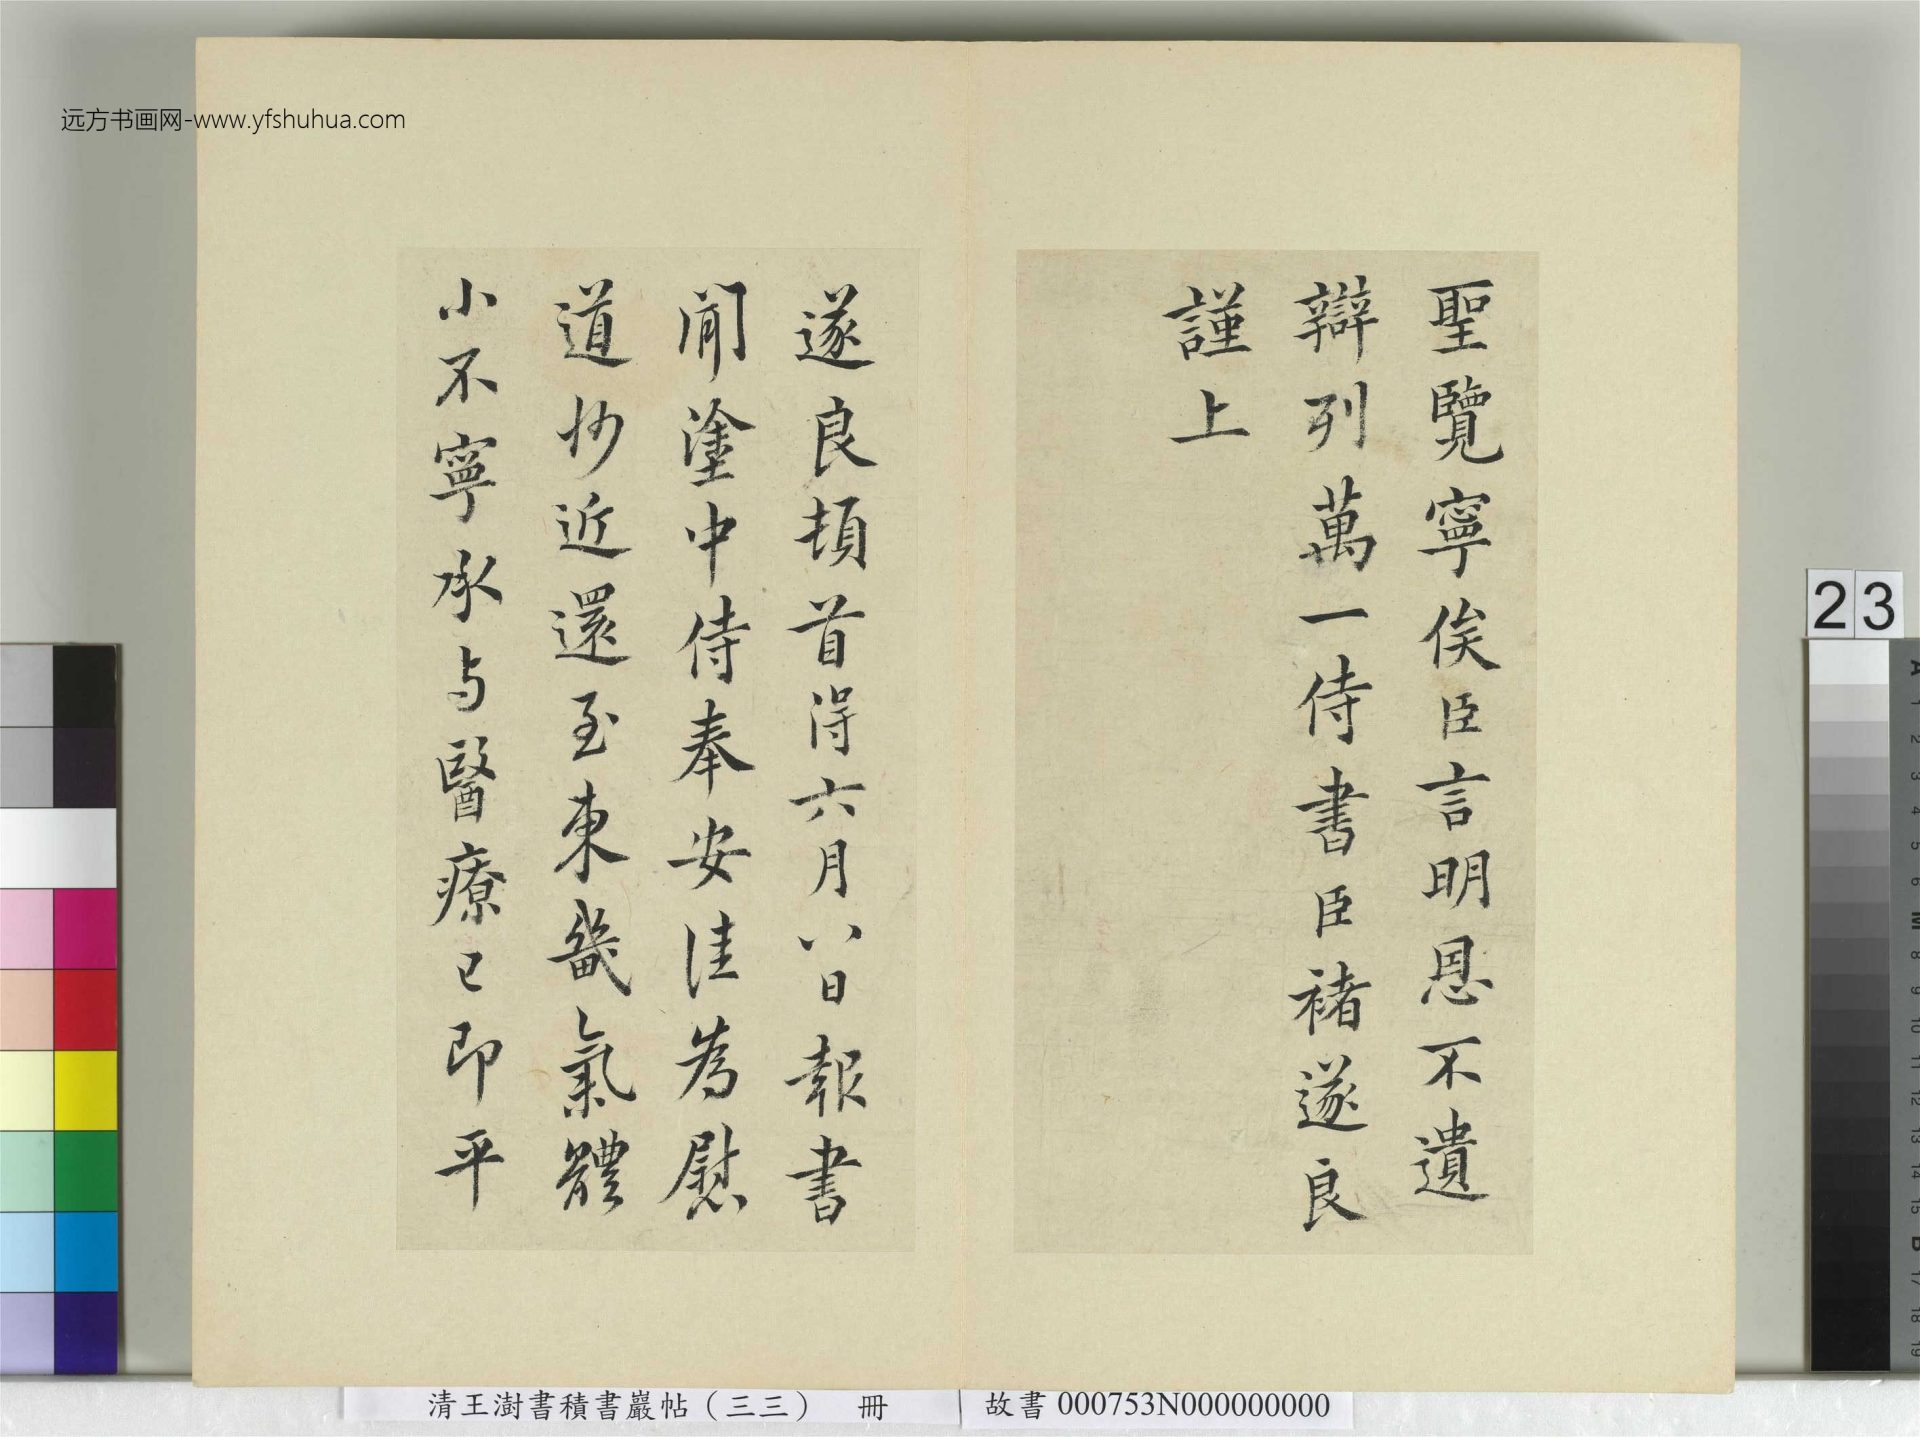 远方书画网-www.yfshuhua.com
聖覽寧俟臣言明恩不遺
辯列萬一侍書臣褚遂良
謹上
遂良頓首得六月八日報書
聞塗中侍奉安佳為慰
道抄近還至東畿氣體
小不寧承与醫療已即平
23
清王澍書積書巖帖（三三） 冊
故書 000753N000000000